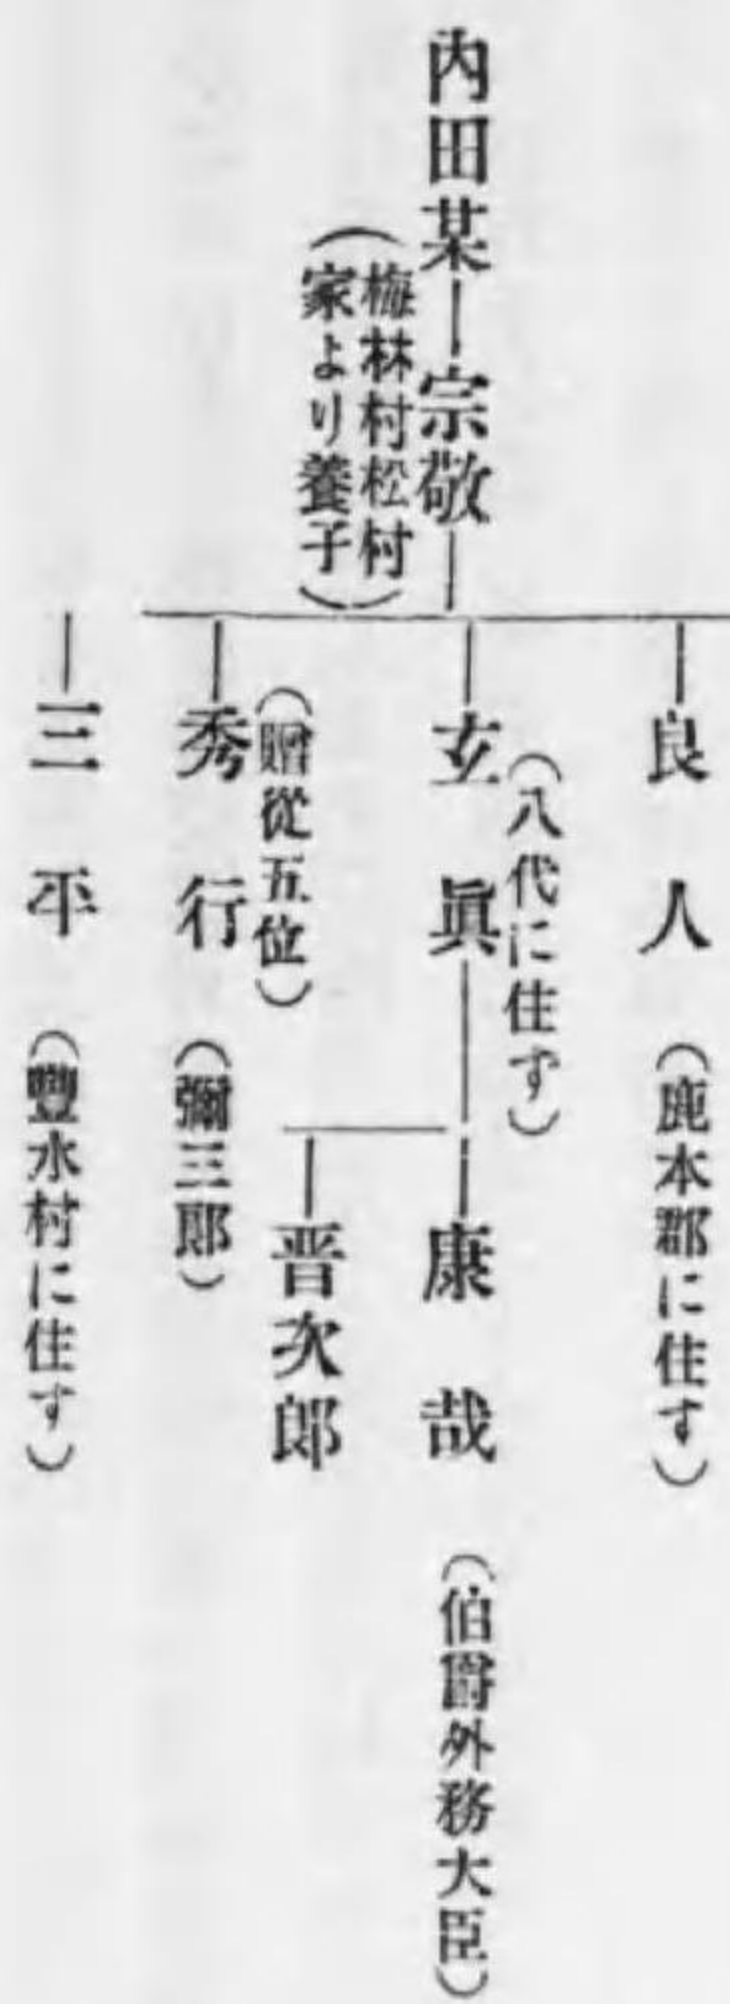 内田某
宗敬
(梅林村松村
家より養子)
良人
(鹿本郡に住す)
(八代に住す)
玄眞
康哉
(伯爵外務大臣)
晋次郎
(贈從五位)
秀行
(彌三郎)
三平
(豐水村に住す)